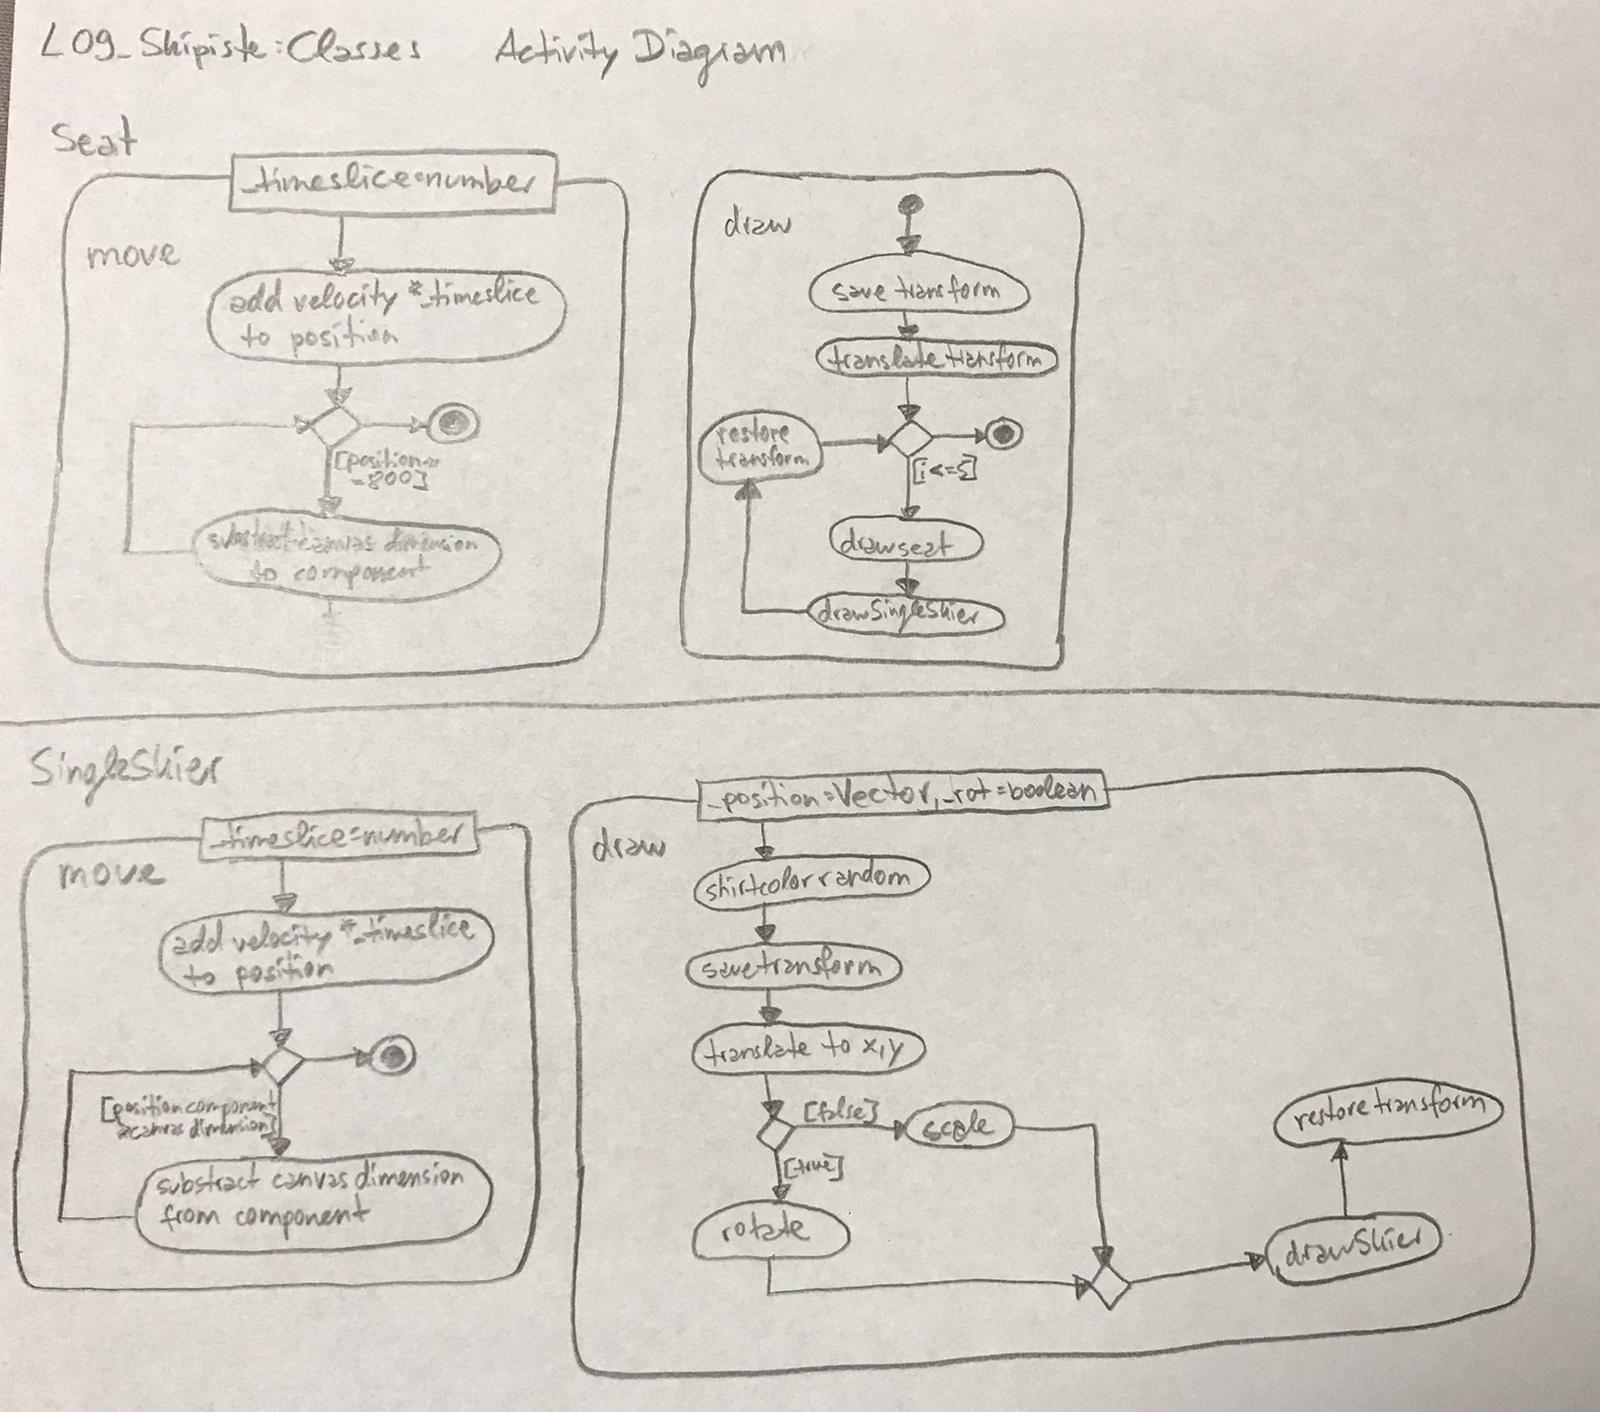 L09_Skipiste: Classes Activity Diagram
Seat
_timeslice: number
move
add velocity * _timeslice
to position
[position
-800]
substract canvas dimension
to component
draw
save transform
translate transform
restore
transform
[i <= 5]
drawseat
drawSingleSkier
SingleSkier
_timeslice: number
move
add velocity * _timeslice
to position
[position component
canvas dimension]
substract canvas dimension
from component
_position: Vector, _rot: boolean
draw
shirtcolor random
save transform
translate to x,y
[false]
scale
[true]
rotate
drawSkier
restore transform